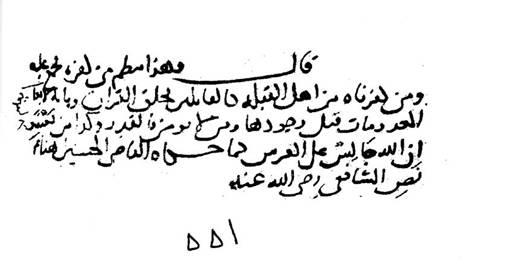 قال وهذا ينظم من كفره مجمع عليه
ومن كفرناه من اهل القبلة كالقائلين بخلق القران وبانه لا يعلم
المعدومات قبل وجودها ومن لا يومن بالقدر وكذا من يعتقد
ان الله جالس على العرش كما حكاه القاضي الحسين هنا عن
نص الشافعي رضي الله عنه
٥٥١